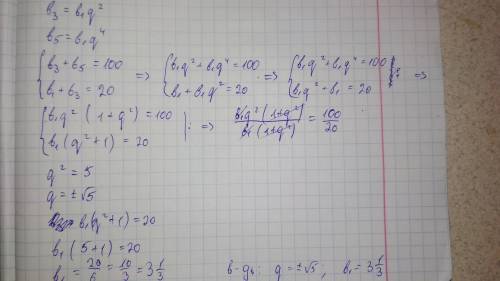 b₃ = b₁q²
b₅ = b₁q⁴
{ b₃ + b₅ = 100 => { b₁q² + b₁q⁴ = 100 => { b₁q² + b₁q⁴ = 100 | : =>
{ b₁ + b₃ = 20 { b₁ + b₁q² = 20 { b₁q² + b₁ = 20
{ b₁q² (1+q²) = 100 | : => b₁q² (1+q²) / b₁ (1+q²) = 100/20
{ b₁ (q²+1) = 20
q² = 5
q = ±√5
b₁(q²+1) = 20
b₁ (5+1) = 20
b₁ = 20/6 = 10/3 = 3 1/3 в-дь: q = ±√5, b₁ = 3 1/3